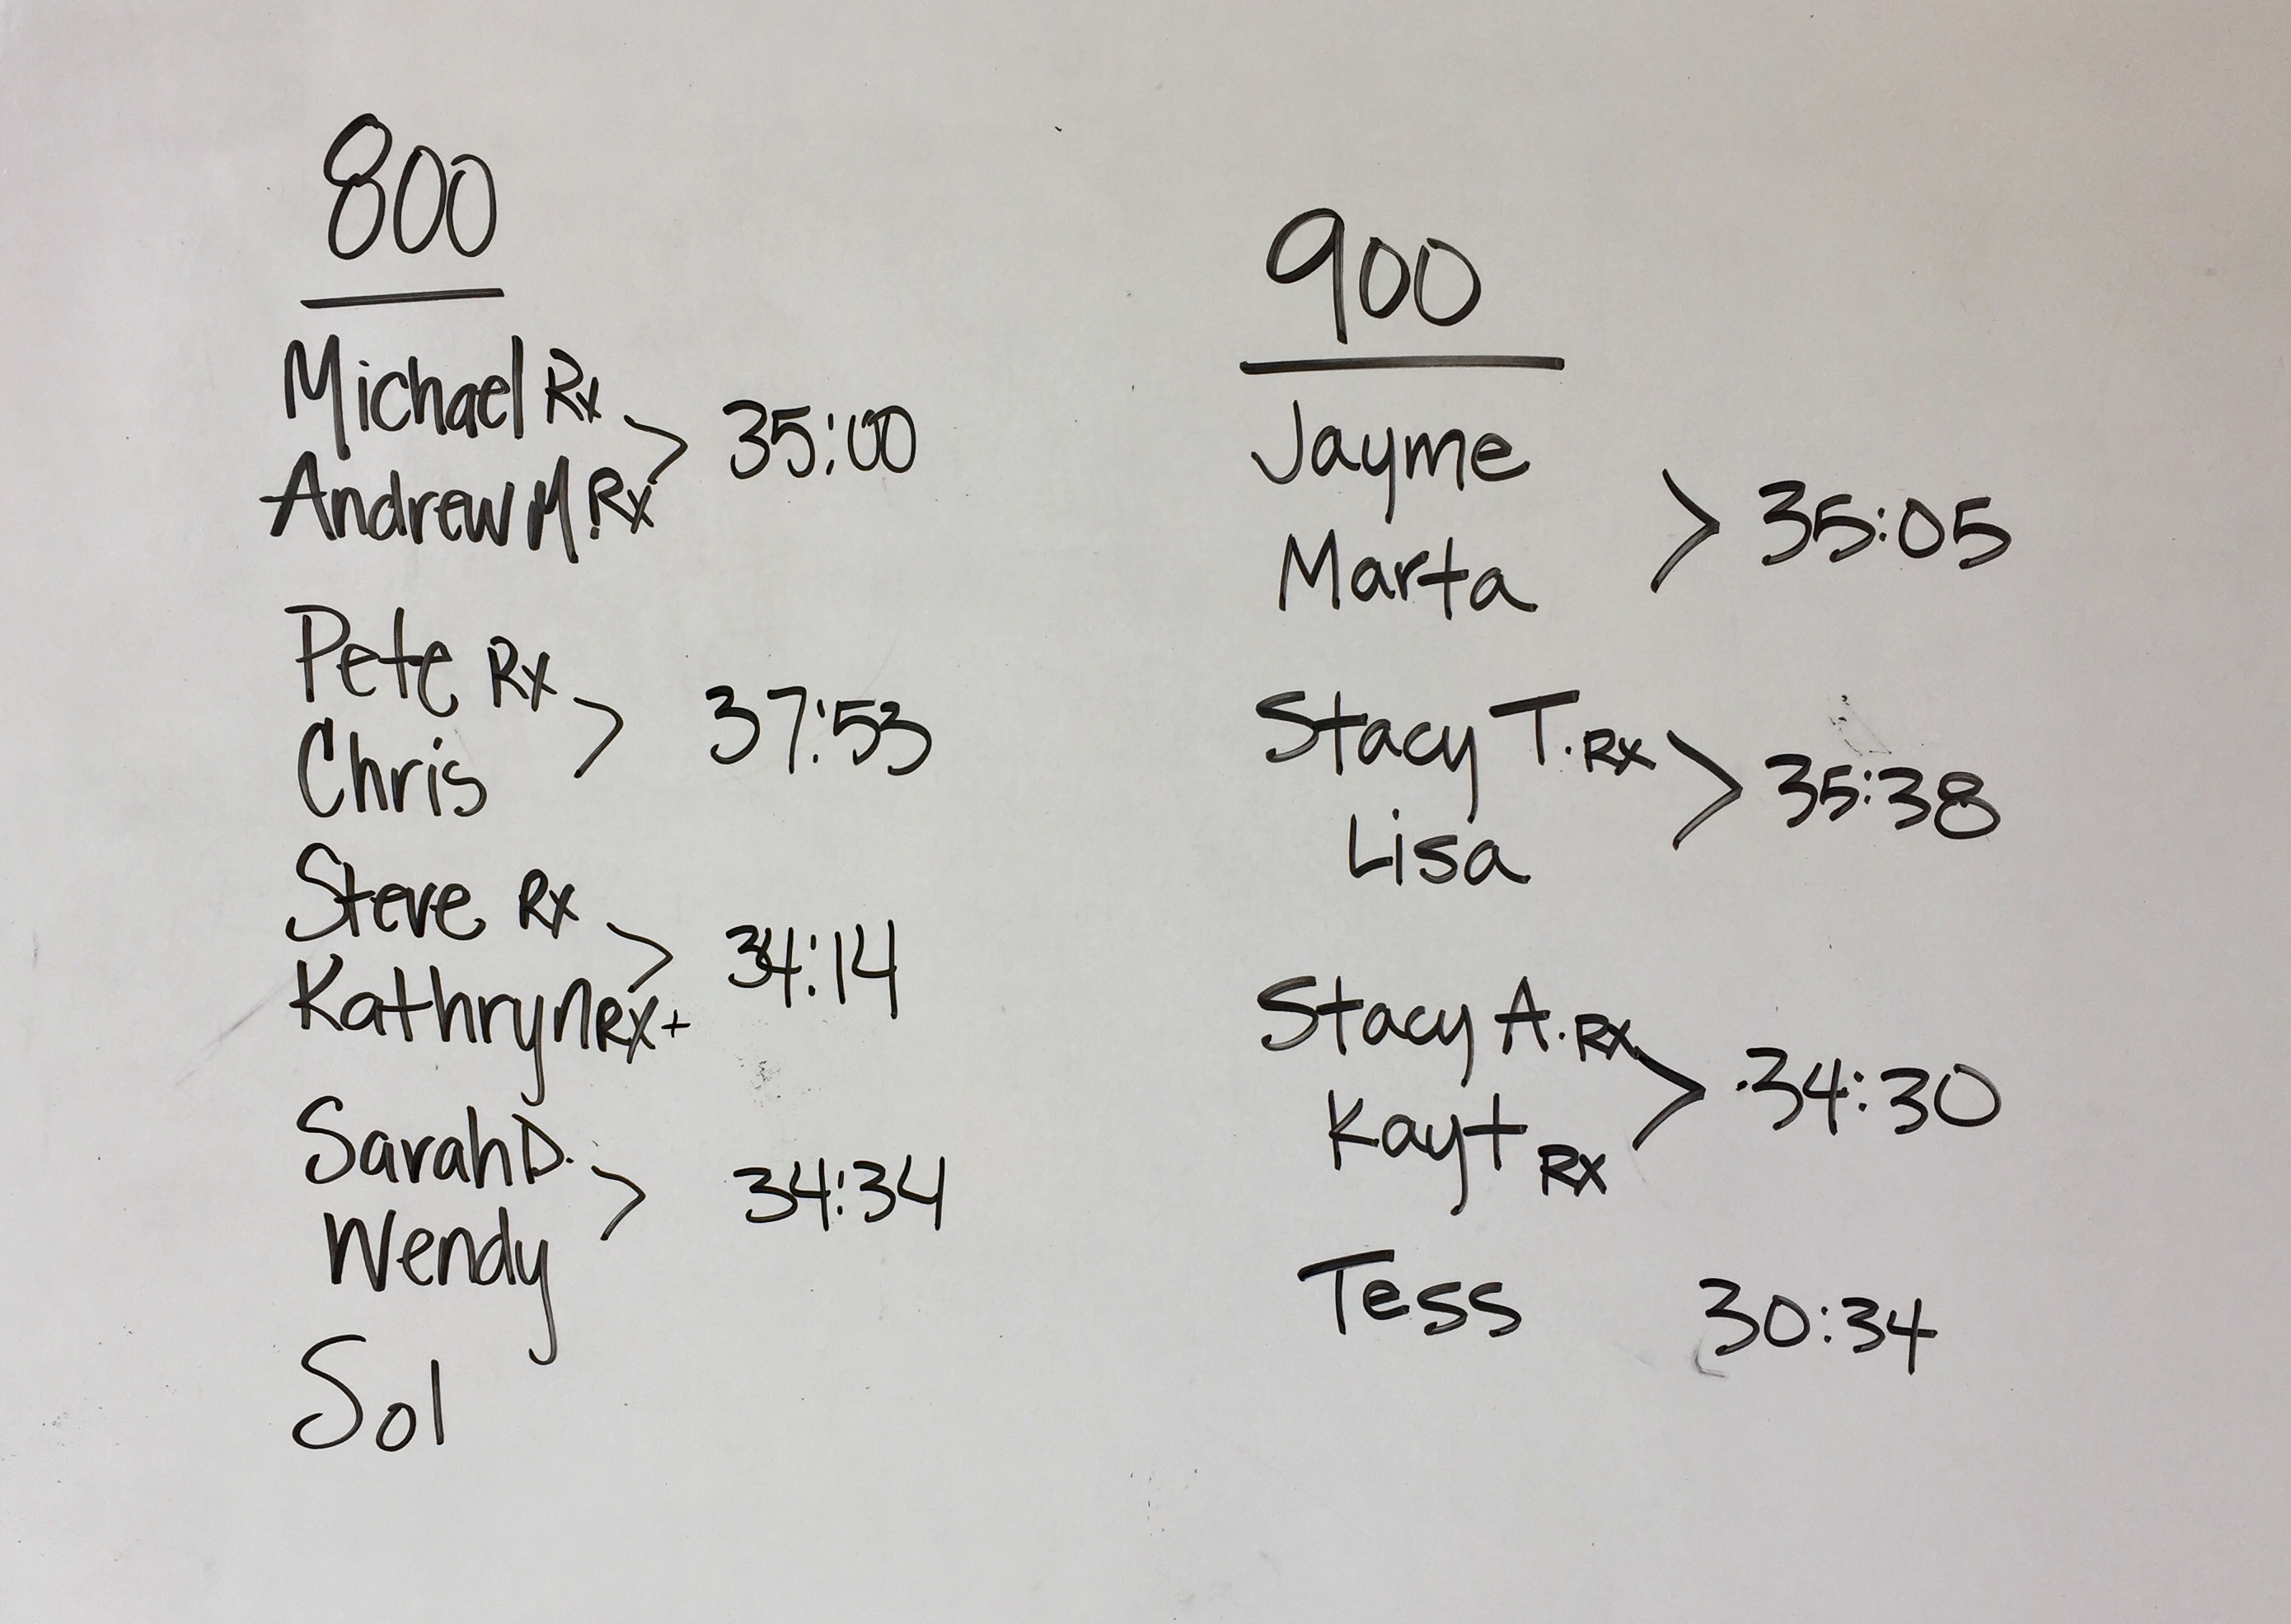 800
Michael Rx
Andrew M. Rx > 35:00
Pete Rx
Chris > 37:53
Steve Rx
Kathryn RX+ > 34:14
Sarah D.
Wendy > 34:34
Sol
900
Jayme
Marta > 35:05
Stacy T. RX
Lisa > 35:38
Stacy A. RX
Kayt RX > 34:30
Tess 30:34